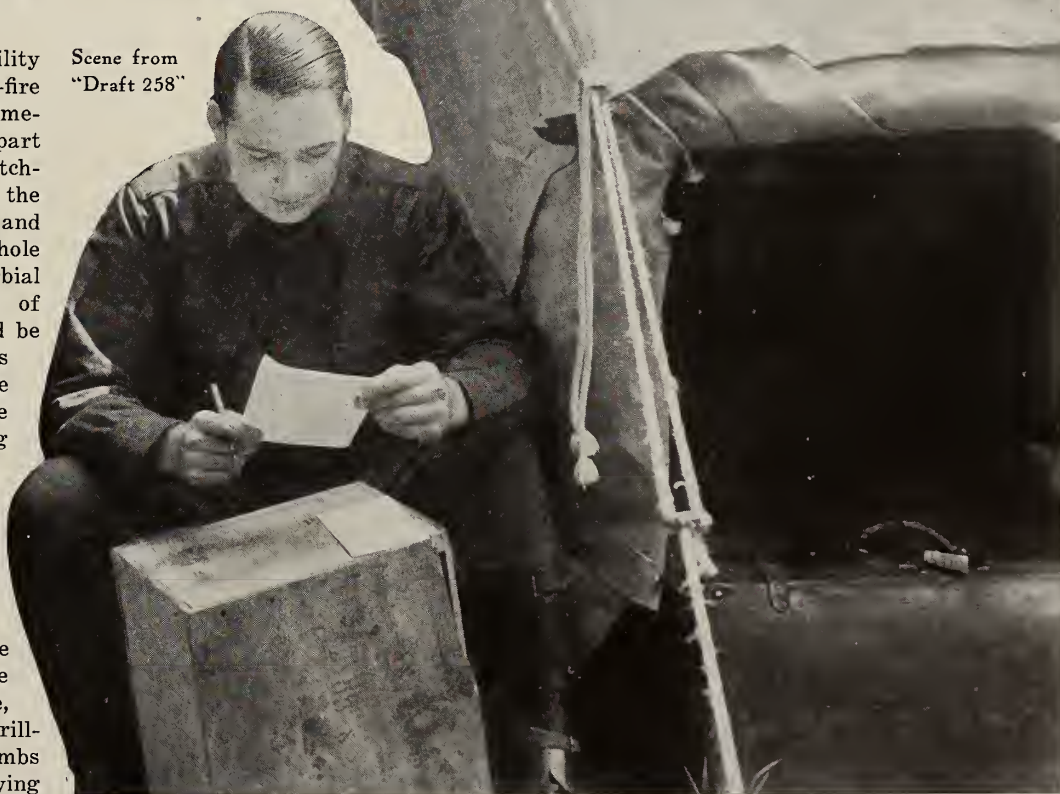 Scene from
"Draft 258"
ility
-fire
me-
part
tch-
the
and
hole
bial
of
d be
s
e
e
g
e
e
e,
rill-
mbs
ying